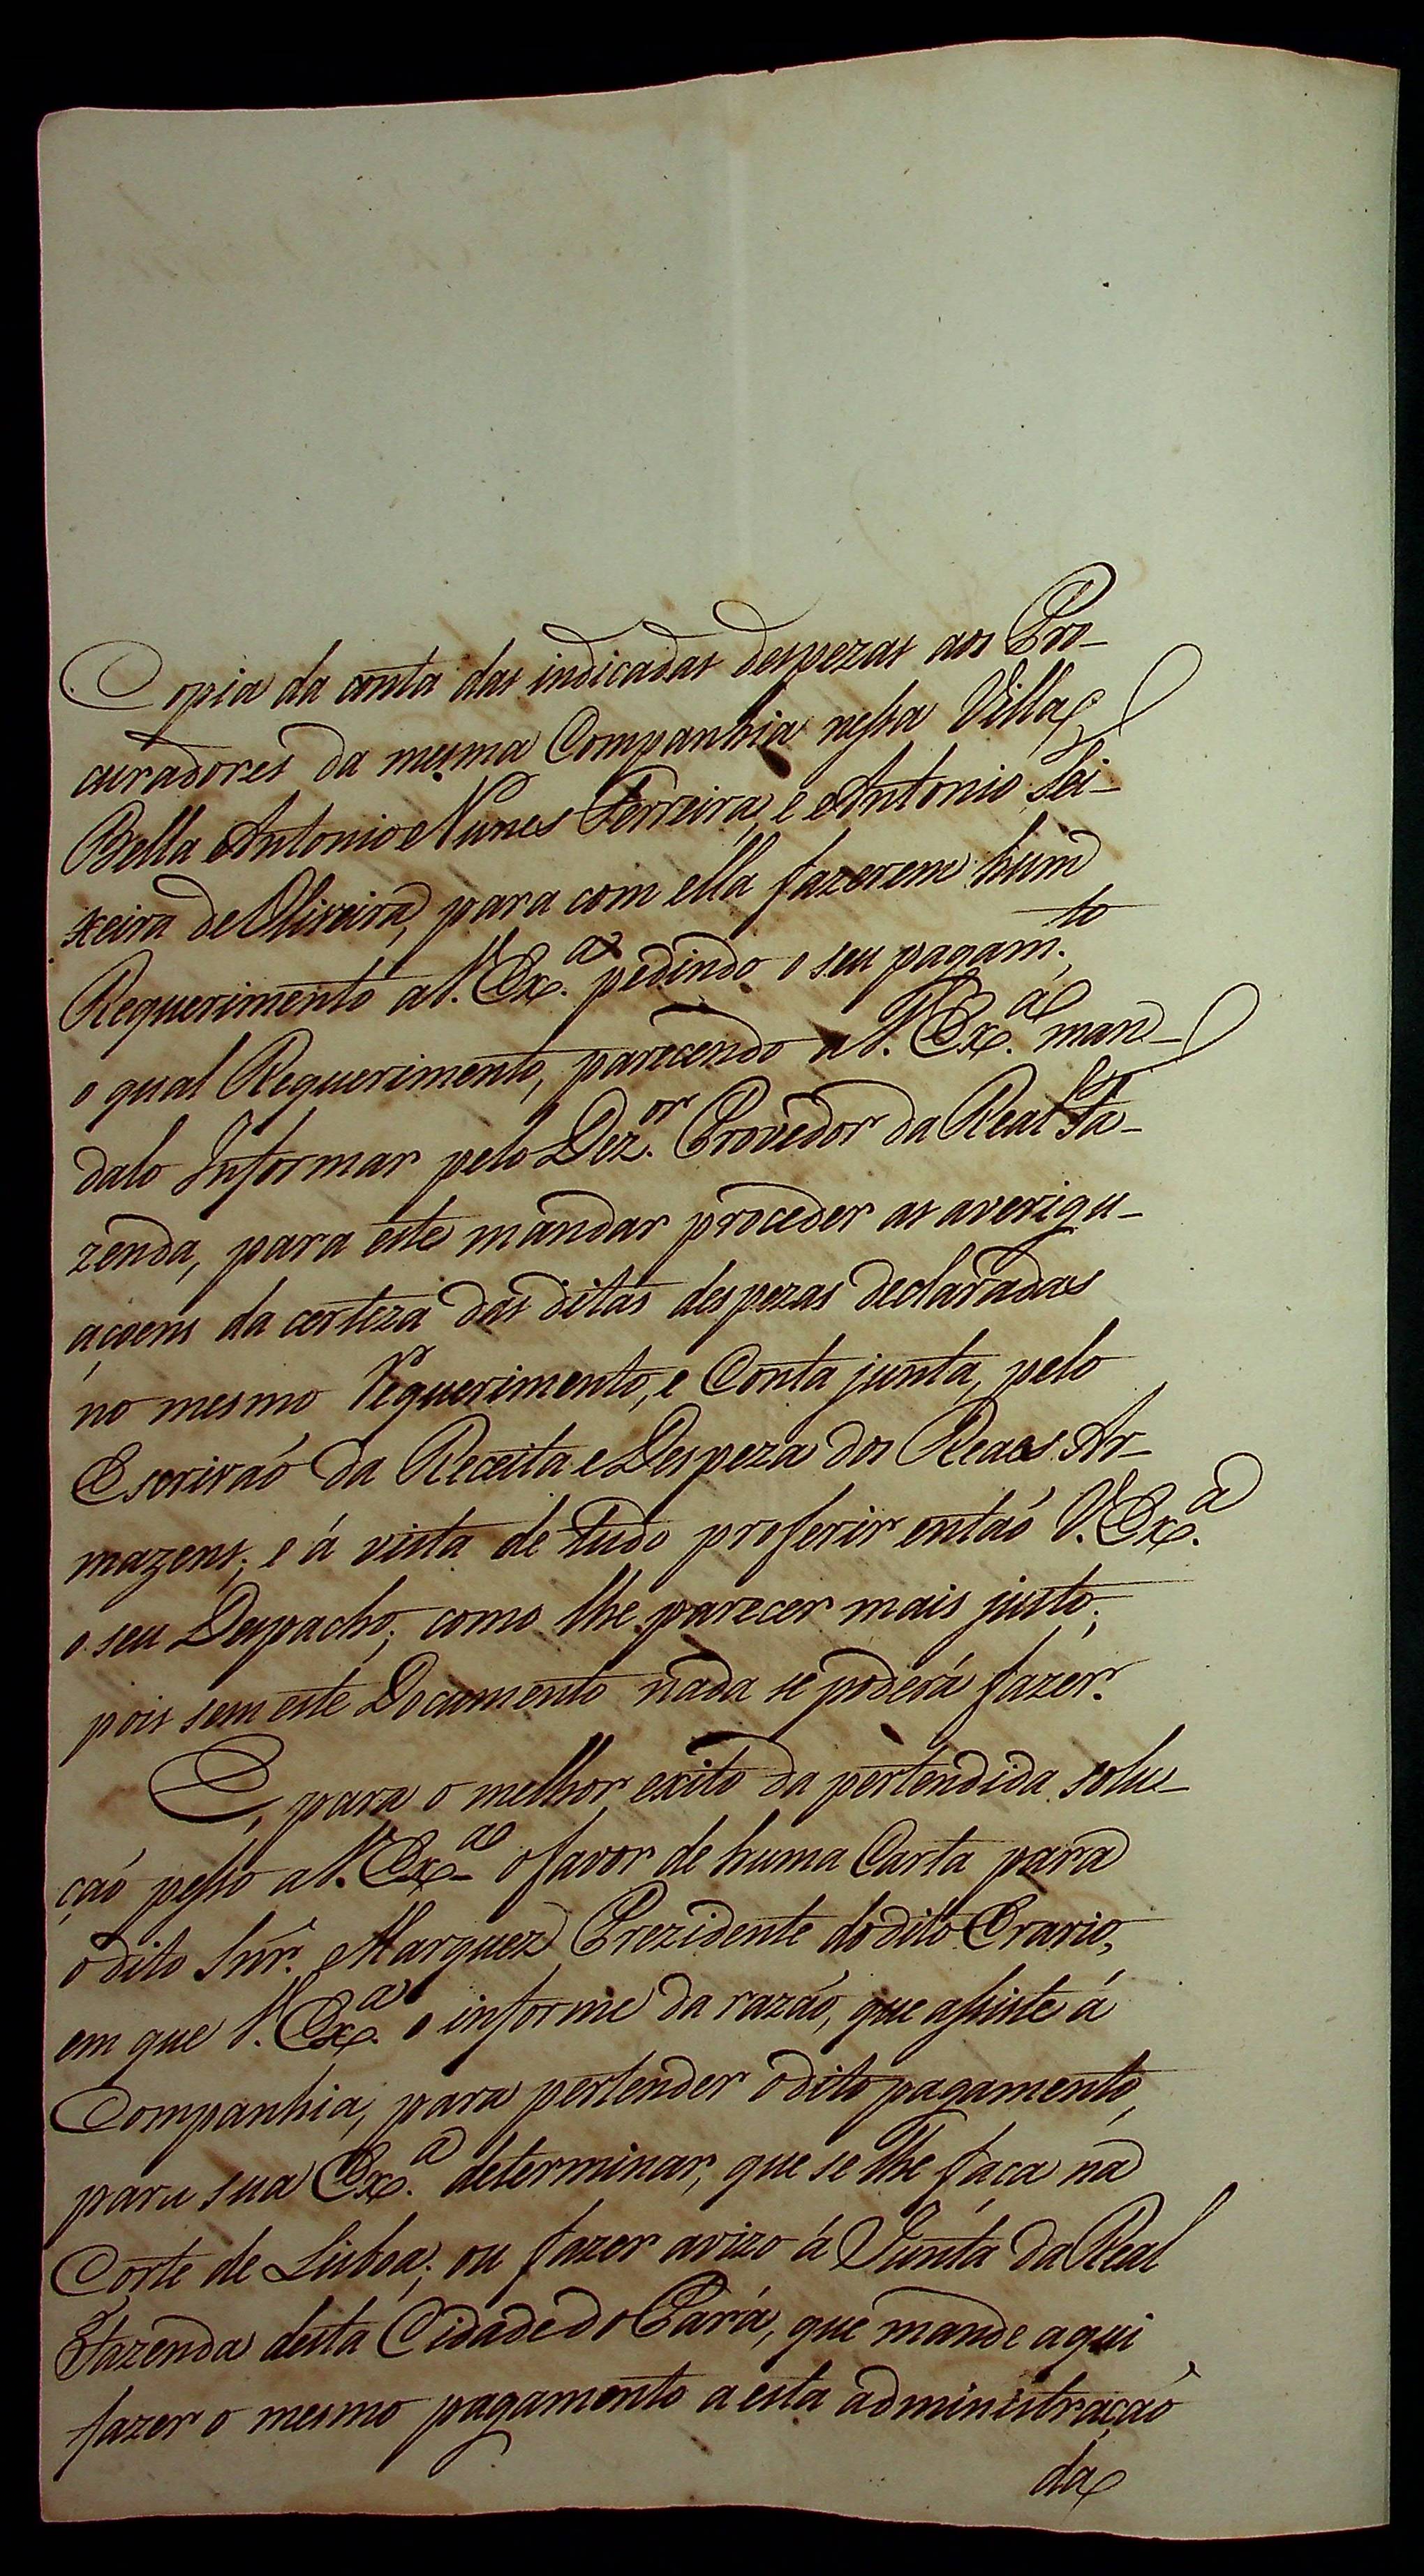 Copia da conta das indicadas despezas aos Pro-
curadores da mesma Companhia nessa Villa
Bella Antonio Nunes Ferreira, e Antonio Tei-
xeira de Oliveira, para com ella fazerem hum
Requerimento a V. Ex.ª pedindo o seu pagam.to,
o qual Requerimento, parecendo a V. Ex.ª man-
dalo Informar pelo Dez.or Provedor da Real Fa-
zenda, para este mandar proceder as averigu-
açoens da certeza das ditas despezas declaradas
no mesmo Requerimento, e Conta junta, pelo
Escrivaõ da Receita e Despeza dos Reaes Ar-
mazens; e á vista de tudo proferir entaõ V. Ex.ª
o seu Despacho; como lhe parecer mais justo;
pois sem este Documento nada se poderá fazer.
E, para o melhor exito da pertendida solu-
çaõ pesso a V. Ex.ª o favor de huma Carta para
o dito Snr. Marquez Prezidente do dito Erario,
em que V. Ex.ª o informe da razaõ, que assiste á
Companhia, para pertender o dito pagamento,
para sua Ex.ª determinar, que se lhe faça na
Corte de Lisboa; ou fazer avizo á Junta da Real
Fazenda desta Cidade do Pará, que mande aqui
fazer o mesmo pagamento a esta administraçaõ
da